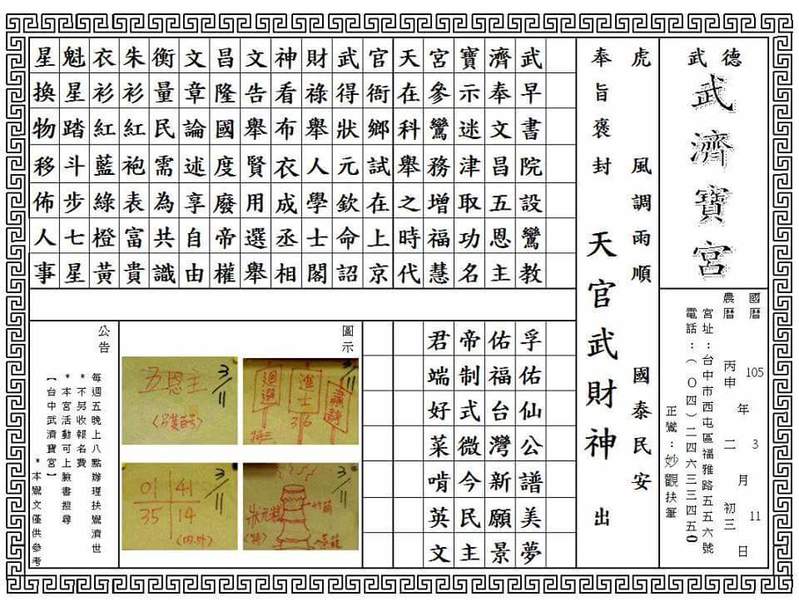 武德
武濟寶宮
國曆 105 年 3 月 11 日
農曆 丙申 年 二 月 初三
宮址:台中市西屯區福雅路五五六號
電話:(〇四)二四六三三四五0
正鸞:妙觀扶筆
虎 風調雨順 國泰民安
奉旨褒封 天官武財神 出
武早書院設鸞教
濟奉文昌五恩主
寶示迷津取功名
宮參鸞務增福慧
天在科舉之時代
官衙鄉試在上京
武得狀元欽命詔
財祿舉人學士閣
神看布衣成丞相
文告舉賢用選舉
昌隆國度廢帝權
文章論述享自由
衡量民需為共識
朱衫紅袍表富貴
衣衫紅藍綠橙黃
魁星踏斗步七星
星換物移佈人事
孚佑仙公譜美夢
佑福台灣新願景
帝制式微今民主
君端好菜啃英文
圖示
3/11
迴避
進士
36
3/11
五恩主
3/11
狀元糕
3/11
01 41
35 14
公告
每週五晚上八點辦理扶鸞濟世
*不另收報名費
*本宮活動可上臉書搜尋
【台中武濟寶宮】
*本鸞文僅供參考